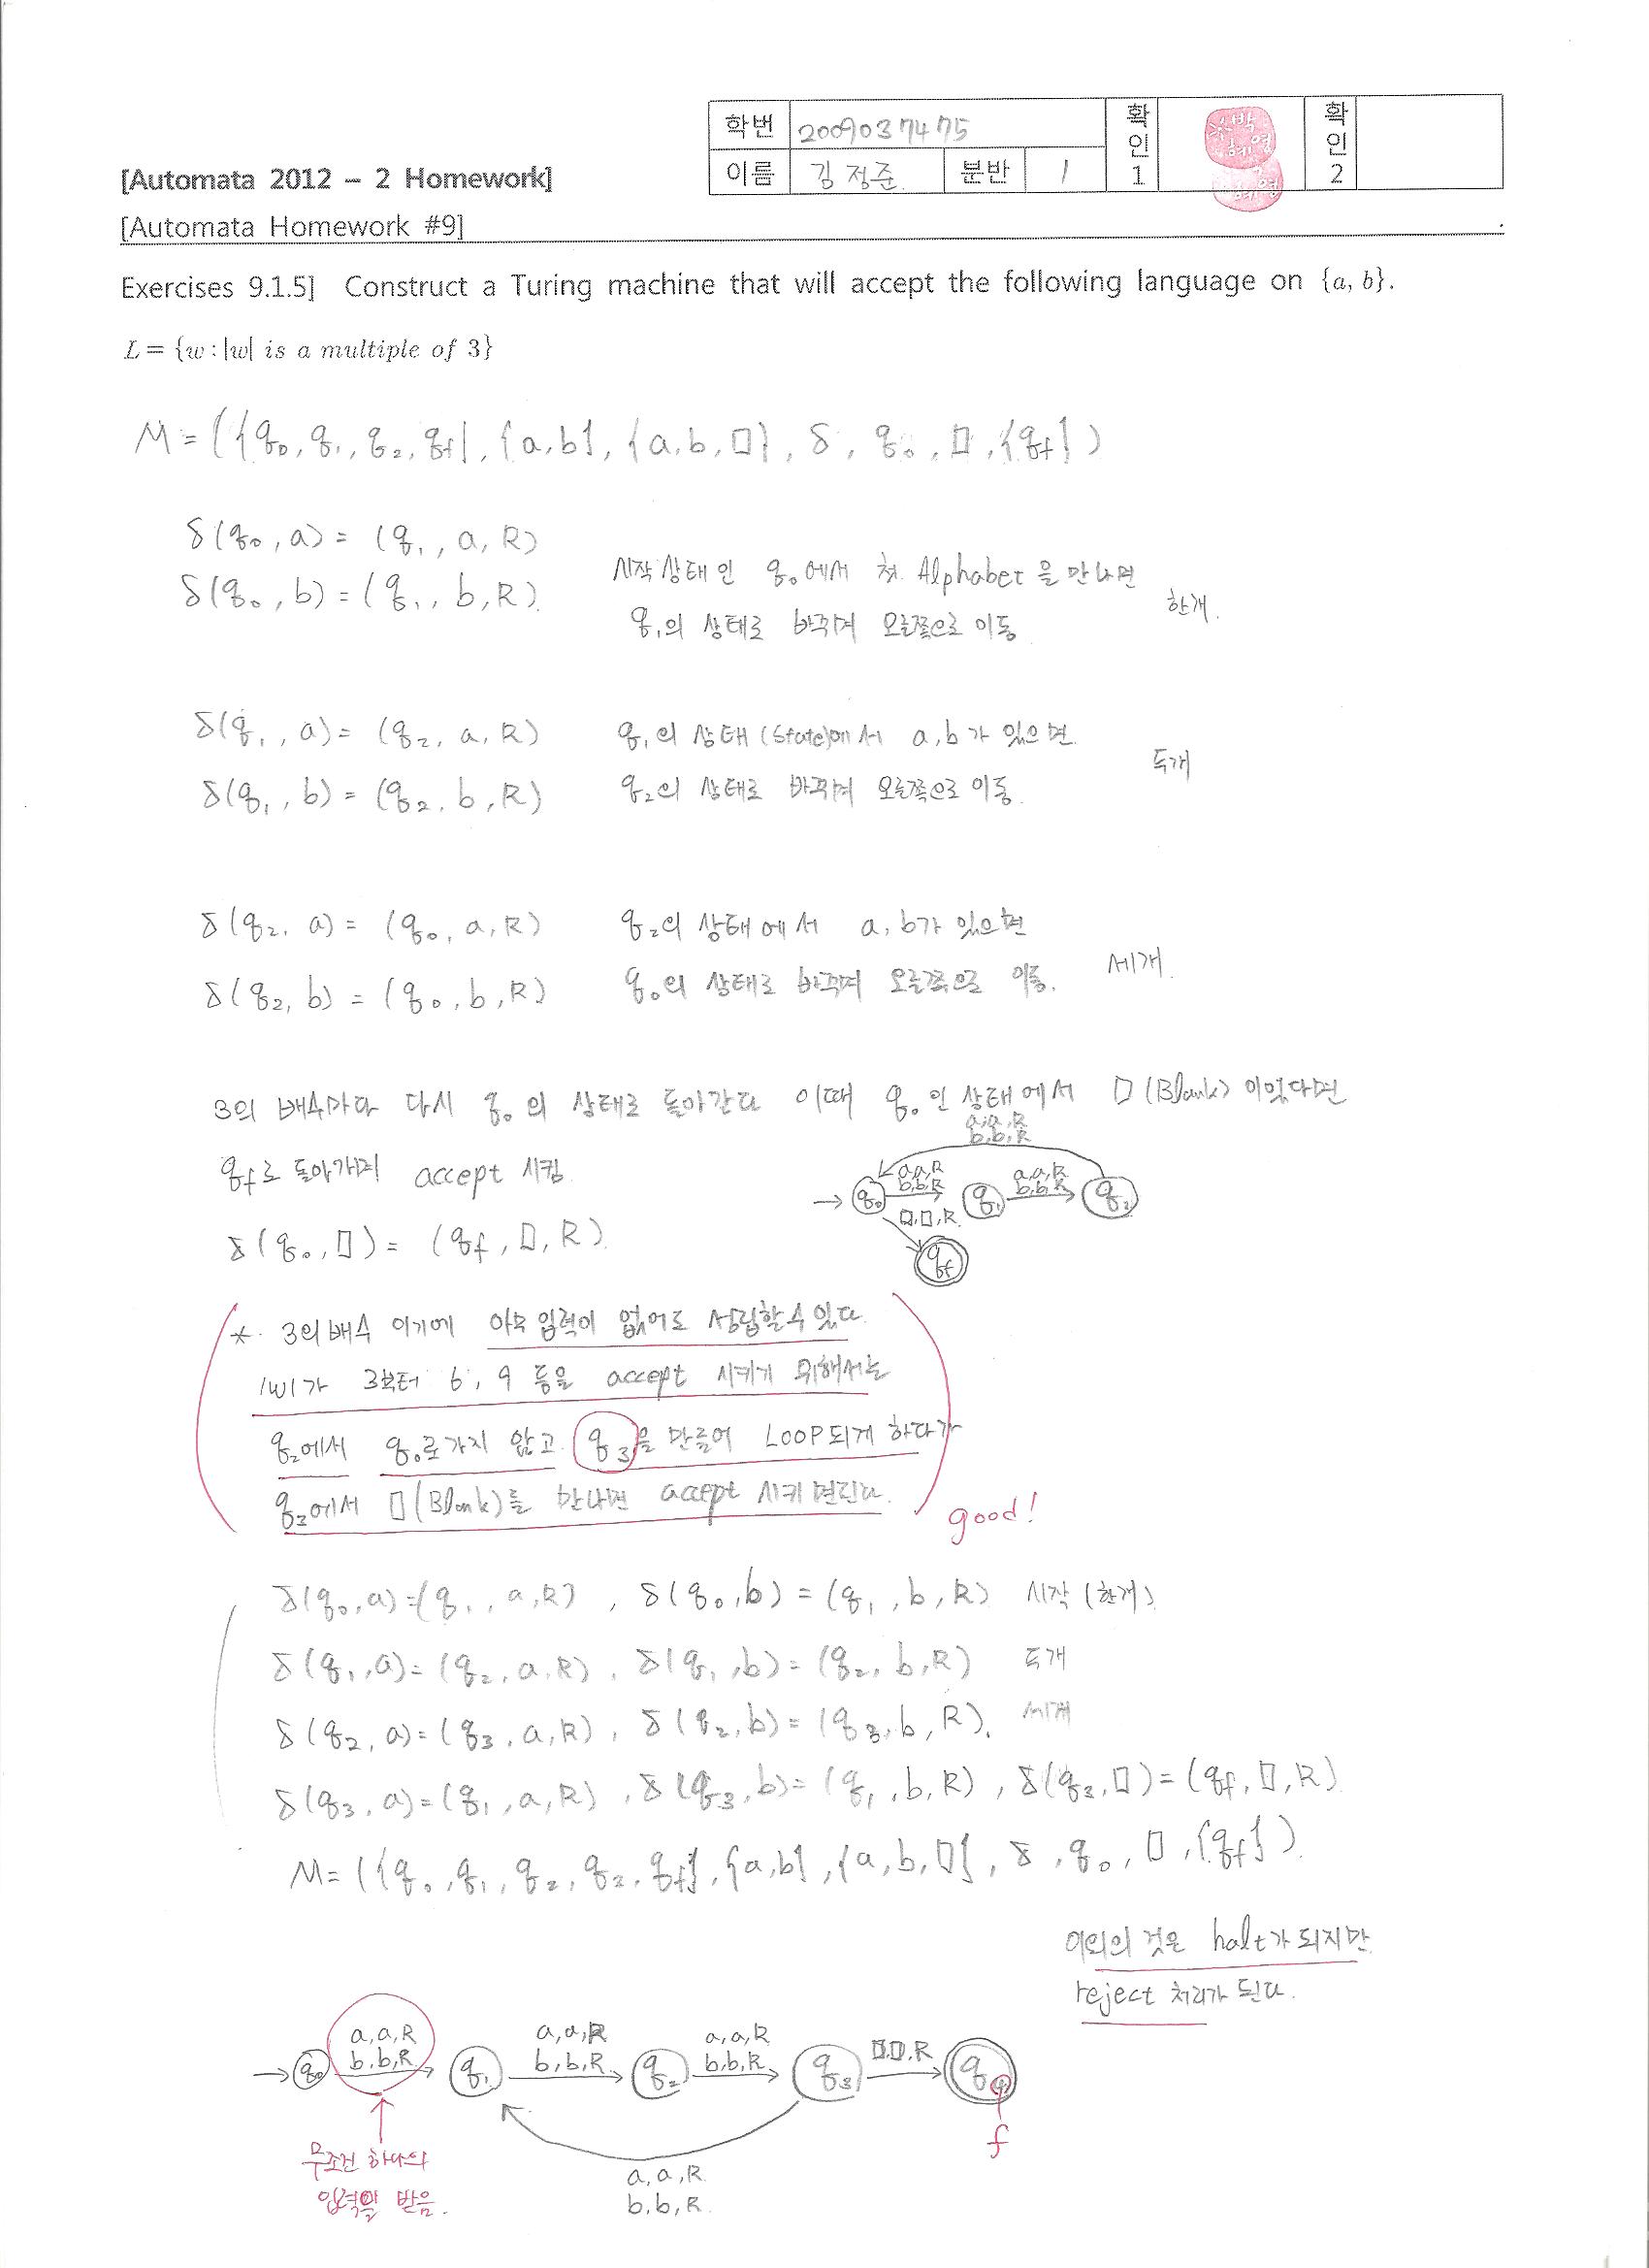 학번 2009037475 확인1 확인2
이름 김정준 분반 1
[Automata 2012 – 2 Homework]
[Automata Homework #9]
Exercises 9.1.5] Construct a Turing machine that will accept the following language on {a, b}.
L = {w : |w| is a multiple of 3}
M = ({q₀, q₁, q₂, qf}, {a, b}, {a, b, □}, δ, q₀, □, {qf})
δ(q₀, a) = (q₁, a, R)
δ(q₀, b) = (q₁, b, R)
시작상태인 q₀에서 첫 Alphabet을 만나면
q₁의 상태로 바꾸며 오른쪽으로 이동
한개.
δ(q₁, a) = (q₂, a, R)
δ(q₁, b) = (q₂, b, R)
q₁의 상태(State)에서 a, b가 있으면
q₂의 상태로 바꾸며 오른쪽으로 이동.
두개
δ(q₂, a) = (q₀, a, R)
δ(q₂, b) = (q₀, b, R)
q₂의 상태에서 a, b가 있으면
q₀의 상태로 바꾸며 오른쪽으로 이동.
세개.
3의 배수마다 다시 q₀의 상태로 돌아간다 이때 q₀인 상태에서 □(Blank)이있다면
qf로 돌아가며 accept 시킴
a,a,R
b,b,R
a,a,R
b,b,R
a,a,R
b,b,R
q₀ q₁ q₂
□,□,R
qf
δ(q₀, □) = (qf, □, R)
* 3의배수 이기에 아무 입력이 없어도 성립할수있다
|w|가 3부터 6, 9 등을 accept 시키기 위해서는
q₂에서 q₀로가지 않고 q₃을 만들어 LOOP되게 하다가
q₃에서 □(Blank)를 만나면 accept 시키면된다.
good!
δ(q₀,a)=(q₁,a,R), δ(q₀,b)=(q₁,b,R) 시작(한개)
δ(q₁,a)=(q₂,a,R), δ(q₁,b)=(q₂,b,R) 두개
δ(q₂,a)=(q₃,a,R), δ(q₂,b)=(q₃,b,R). 세개
δ(q₃,a)=(q₁,a,R), δ(q₃,b)=(q₁,b,R), δ(q₃,□)=(qf,□,R)
M=({q₀,q₁,q₂,q₃,qf},{a,b},{a,b,□},δ,q₀,□,{qf}).
이외의 것은 halt가 되지만
reject 처리가 된다.
a,a,R a,a,R a,a,R
b,b,R b,b,R b,b,R □,□,R
q₀ q₁ q₂ q₃ q₄
f
무조건 하나의
입력을 받음.
a,a,R
b,b,R